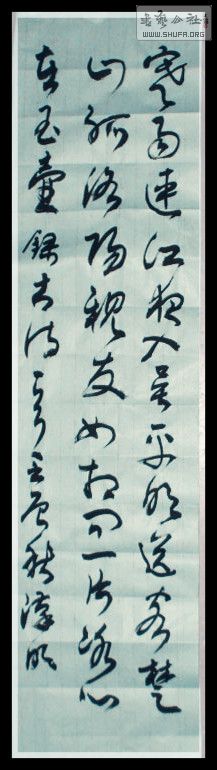 书艺公社
WWW.SHUFA.ORG
寒雨連江夜入吳平明送客楚
山孤洛陽親友如相問一片冰心
在玉壺錄古詩